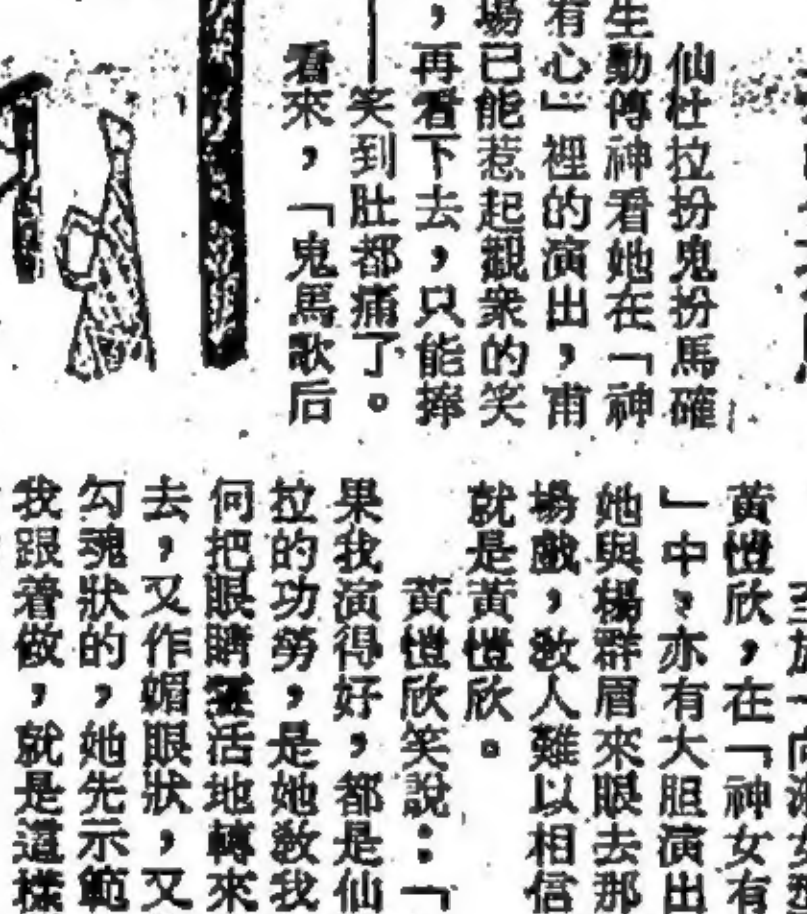 仙杜拉扮鬼扮馬確
生動傳神看她在「神
有心」裡的演出,甫
場已能惹起觀衆的笑
,再看下去,只能捧
笑到肚都痛了。
看來,「鬼馬歌后
黃愷欣,在「神女有
」中,亦有大胆演出
她與楊群眉來眼去那
場戲,敎人難以相信
就是黃愷欣。
黃愷欣笑說:「
果我演得好,都是仙
拉的功勞,是她敎我
何把眼睛靈活地轉來
去,又作媚眼狀,又
勾魂狀的,她先示範
我跟着做,就是這樣